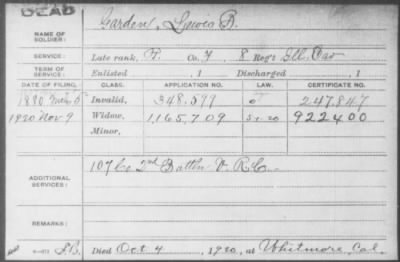 DEAD
NAME OF SOLDIER: Garden, Lewis B.
SERVICE: Late rank, Co. F, 8 Reg't Ill. Cav
TERM OF SERVICE: Enlisted , 1 Discharged , 1
DATE OF FILING. CLASS. APPLICATION NO. LAW. CERTIFICATE NO.
1880 Invalid, 348.599 247.847
1920 Nov 9 Widow, 1,165,709 922400
Minor,
ADDITIONAL SERVICES: 107 Co 2nd Battln V.R.C.
REMARKS:
Died Oct 4, 1920, at Whitmore, Cal.